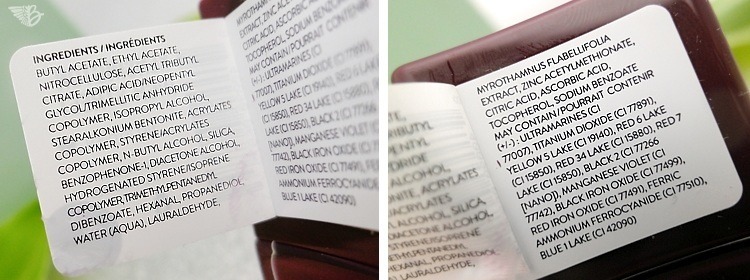 INGREDIENTS / INGRÉDIENTS
BUTYL ACETATE, ETHYL ACETATE,
NITROCELLULOSE, ACETYL TRIBUTYL
CITRATE, ADIPIC ACID/NEOPENTYL
GLYCOL/TRIMELLITIC ANHYDRIDE
COPOLYMER, ISOPROPYL ALCOHOL,
STEARALKONIUM BENTONITE, ACRYLATES
COPOLYMER, STYRENE/ACRYLATES
COPOLYMER, N-BUTYL ALCOHOL, SILICA,
BENZOPHENONE-1, DIACETONE ALCOHOL,
HYDROGENATED STYRENE/ISOPRENE
COPOLYMER, TRIMETHYLPENTANEDIYL
DIBENZOATE, HEXANAL, PROPANEDIOL,
WATER (AQUA), LAURALDEHYDE,
MYROTHAMNUS FLABELLIFOLIA
EXTRACT, ZINC ACETYLMETHIONATE,
CITRIC ACID, ASCORBIC ACID,
TOCOPHEROL, SODIUM BENZOATE
MAY CONTAIN/POURRAIT CONTENIR
(+/-): ULTRAMARINES (CI
77007), TITANIUM DIOXIDE (CI 77891),
YELLOW 5 LAKE (CI 19140), RED 6 LAKE
(CI 15850), RED 34 LAKE (CI 15880), RED 7
LAKE (CI 15850), BLACK 2 (CI 77266
[NANO]), MANGANESE VIOLET (CI
77742), BLACK IRON OXIDE (CI 77499),
RED IRON OXIDE (CI 77491), FERRIC
AMMONIUM FERROCYANIDE (CI 77510),
BLUE 1 LAKE (CI 42090)